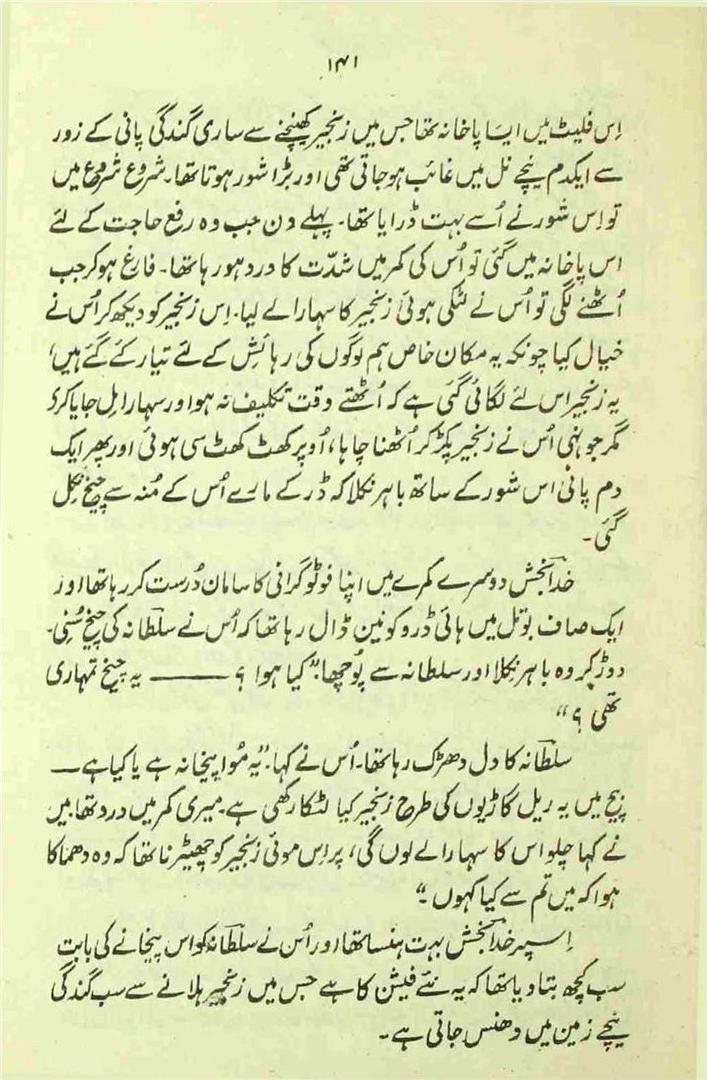 ۱۴۱
اِس فلیٹ میں ایسا پاخانہ تھا جس میں زنجیر کھینچنے سے ساری گندگی پانی کے زور
سے ایکدم نیچے نل میں غائب ہو جاتی تھی اور بڑا شور ہوتا تھا۔ شروع شروع میں
تو اِس شور نے اُسے بہت ڈرایا تھا۔ پہلے دن جب وہ رفع حاجت کے لئے
اس پاخانہ میں گئی تو اُس کی کمر میں شدّت کا درد ہو رہا تھا۔ فارغ ہو کر جب
اُٹھنے لگی تو اُس نے لٹکی ہوئی زنجیر کا سہارا لے لیا۔ اِس زنجیر کو دیکھ کر اُس نے
خیال کیا چونکہ یہ مکان خاص ہم لوگوں کی رہائش کے لئے تیار کئے گئے ہیں،
یہ زنجیر اس لئے لگائی گئی ہے کہ اُٹھتے وقت تکلیف نہ ہو اور سہارا مِل جایا کرے
مگر جونہی اُس نے زنجیر پکڑ کر اُٹھنا چاہا، اُوپر کھٹ کھٹ سی ہوئی اور پھر ایک
دم پانی اس شور کے ساتھ باہر نکلا کہ ڈر کے مارے اُس کے مُنہ سے چیخ نِکل
گئی۔
خدا بخش دوسرے کمرے میں اپنا فوٹو گرافی کا سامان دُرست کر رہا تھا اور
ایک صاف بوتل میں ہائی ڈرو کونین ڈال رہا تھا کہ اُس نے سلطانہ کی چیخ سُنی۔
دوڑ کر وہ باہر نِکلا اور سلطانہ سے پُوچھا: ”کیا ہوا ؟ ——— یہ چیخ تمہاری
تھی ؟“
سلطانہ کا دل دھڑک رہا تھا۔ اُس نے کہا۔ ”یہ مُوا پیخانہ ہے یا کیا ہے —
بیچ میں یہ ریل گاڑیوں کی طرح زنجیر کیا لٹکا رکھی ہے۔ میری کمر میں درد تھا۔ میں
نے کہا چلو اس کا سہارا لے لوں گی، پر اِس موئی زنجیر کو چھیڑنا تھا کہ وہ دھماکا
ہوا کہ میں تم سے کیا کہوں۔“
اِس پر خدا بخش بہت ہنسا تھا اور اُس نے سلطانہ کو اس پیخانے کی بابت
سب کچھ بتا دیا تھا کہ یہ نئے فیشن کا ہے جس میں زنجیر ہلانے سے سب گندگی
نیچے زمین میں دھنس جاتی ہے۔